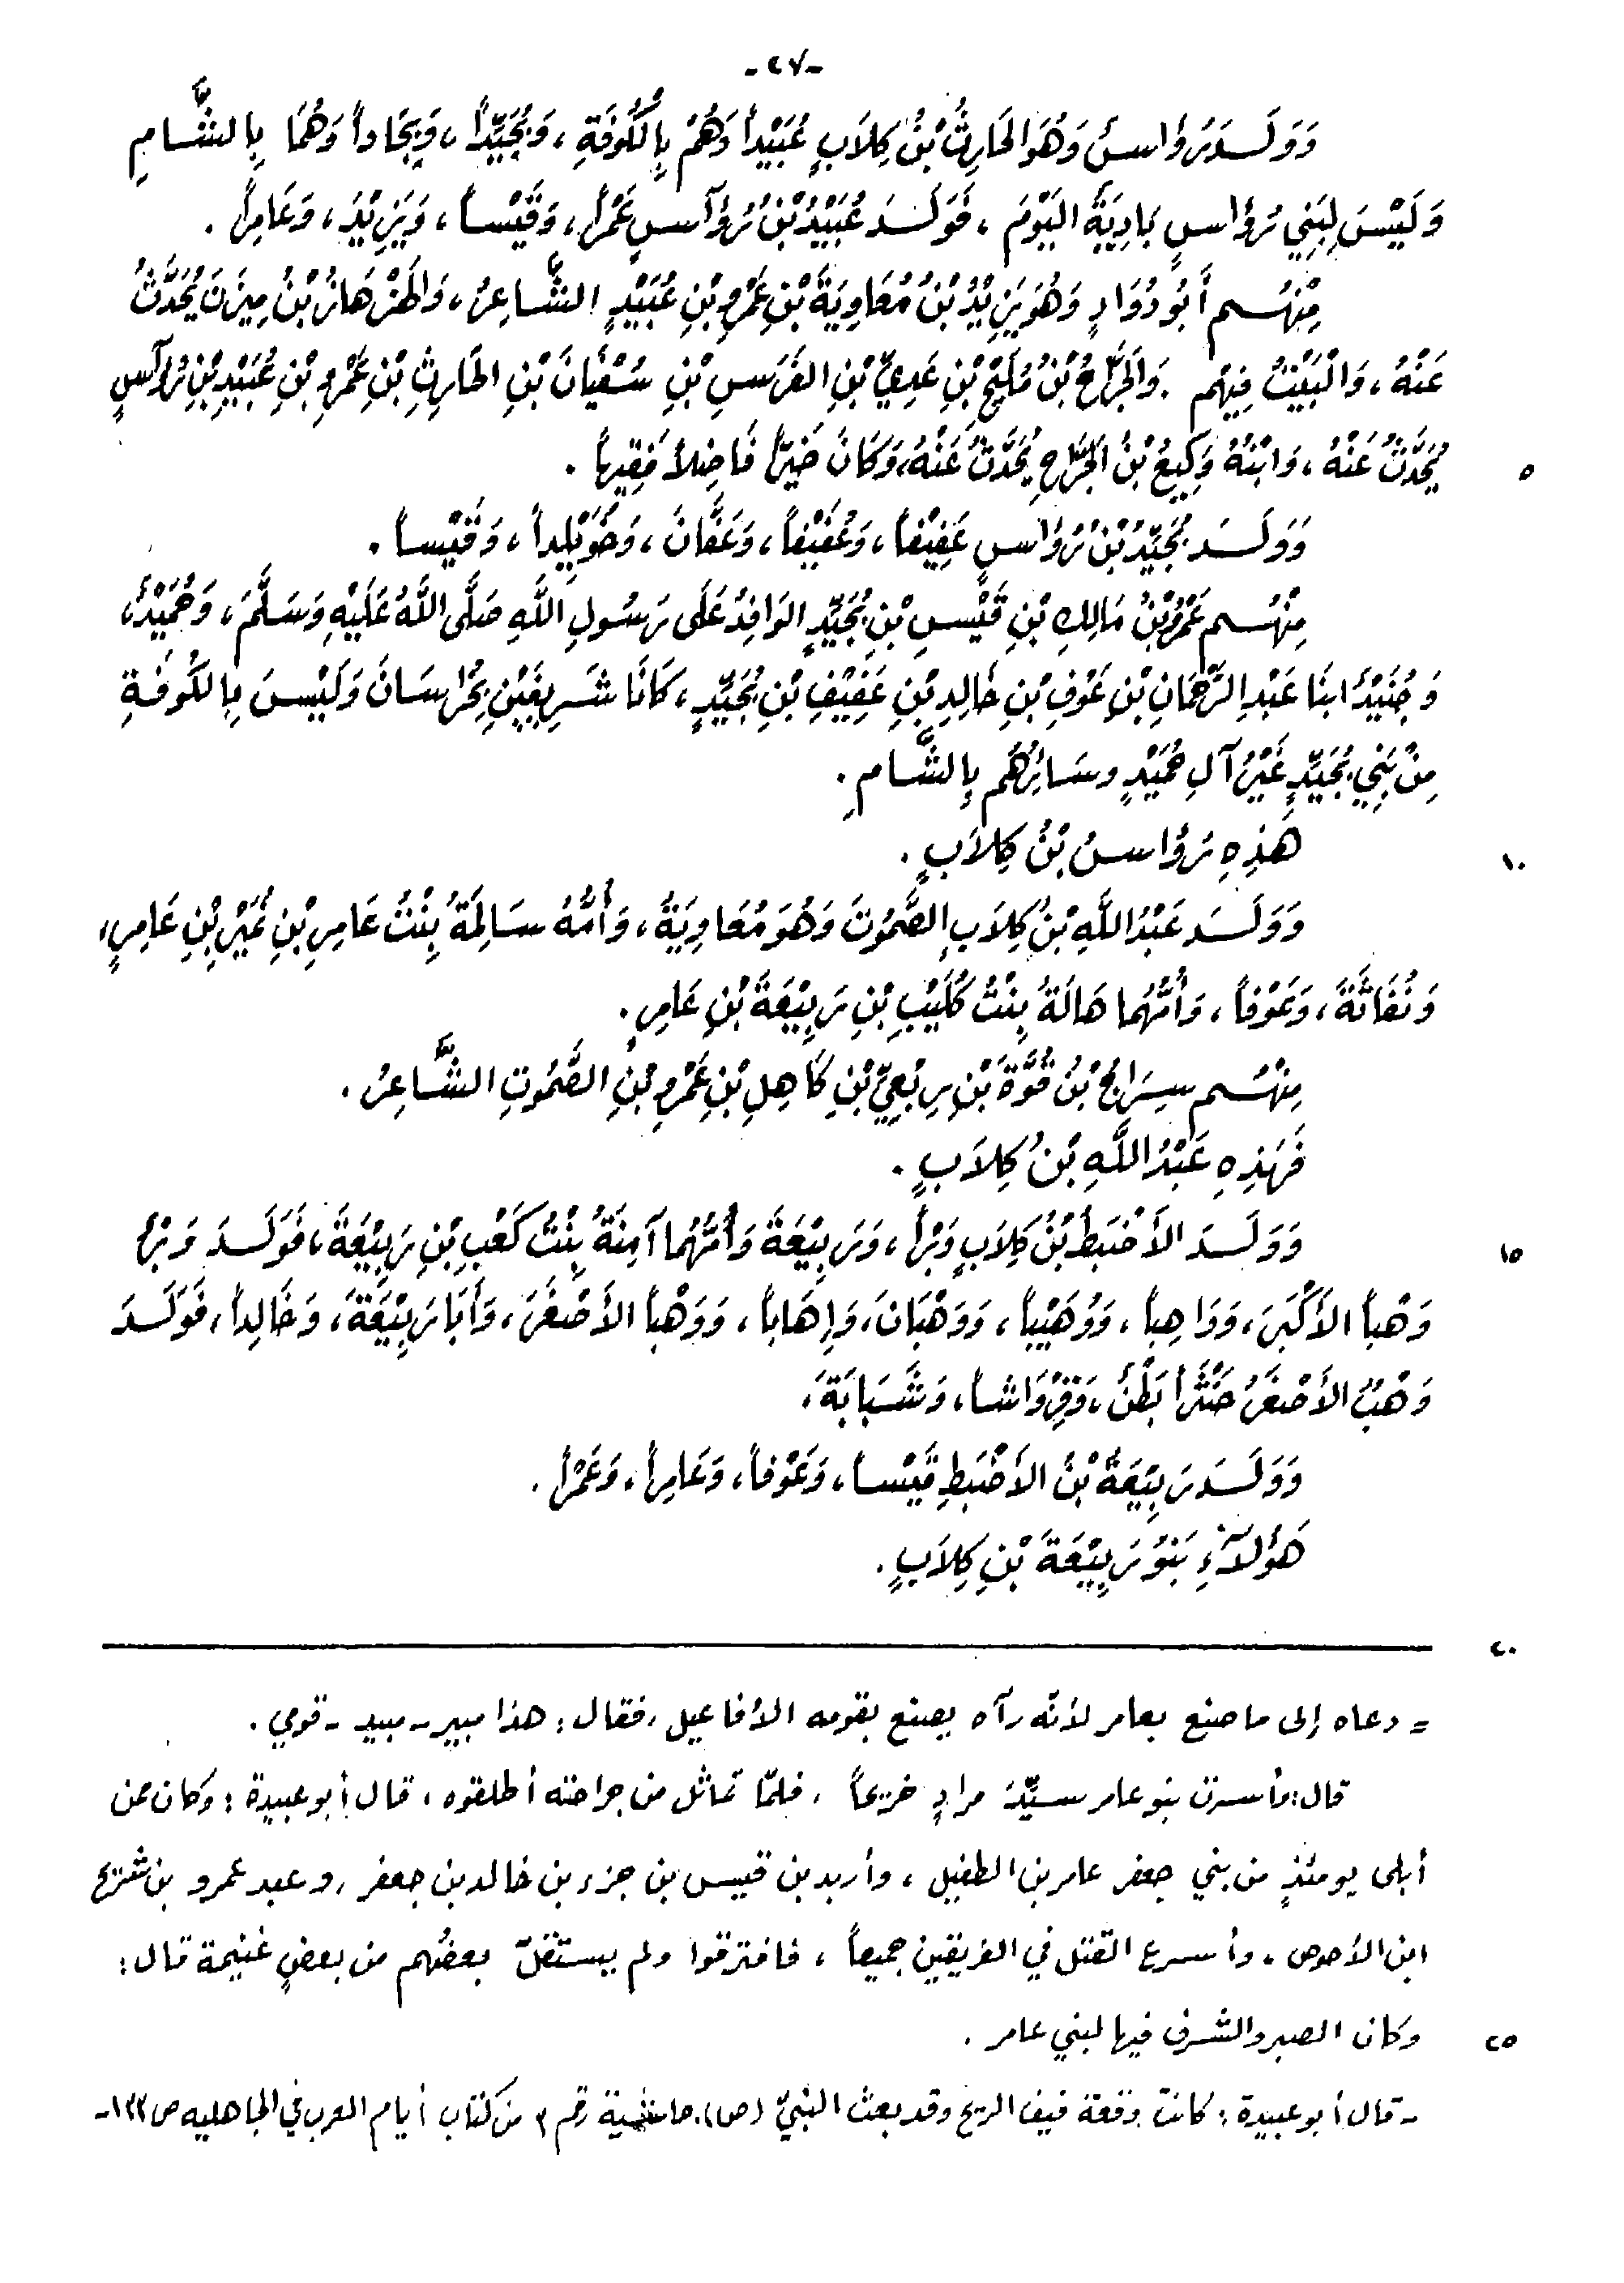 -٢٧-
وَوَلَدَ رُؤَاسُ وَهُوَ الحَارِثُ بْنُ كِلَابٍ عُبَيْداً وَهُمْ بِالكُوفَةِ، وَبُجَيِّداً، وَبِجَاداً وَهُمَا بِالشَّامِ
وَلَيْسَ لِبَنِي رُؤَاسٍ بَادِيَةٌ اليَوْمَ، فَوَلَدَ عُبَيْدُ بْنُ رُؤَآسٍ عَمْراً، وَقَيْساً، وَيَزِيْدَ، وَعَامِراً.
مِنْهُم أَبُو دُوَادٍ وَهُوَ يَزِيْدُ بْنُ مُعَاوِيَةَ بْنِ عَمْرِو بْنِ عُبَيْدٍ الشَّاعِرُ، وَالهَزْهَازُ بْنُ مِيزَنَ يُحَدَّثُ
عَنْهُ، وَالْبَيْتُ فِيْهِم. وَالجَرَّاحُ بْنُ مُلَيْحِ بْنِ عَدِيِّ بْنِ الفَرَسِ بْنِ سُفْيَانَ بْنِ الحَارِثِ بْنِ عَمْرِو بْنِ عُبَيْدِ بْنِ رُؤَآسٍ
يُحَدَّثُ عَنْهُ، وَابْنُهُ وَكِيعُ بْنُ الجَرَّاحِ يُحَدَّثُ عَنْهُ، وَكَانَ خَيِّراً فَاضِلاً فَقِيهاً. ٥
وَوَلَدَ بُجَيِّدُ بْنُ رُؤَاسٍ عَفِيْفاً، وَعُفَيْفاً، وَعَفَّانَ، وَخُوَيْلِداً، وَقَيْساً.
مِنْهُم عَمْرُو بْنُ مَالِكِ بْنِ قَيْسِ بْنِ بُجَيِّدٍ الوَافِدُ عَلَى رَسُولِ اللَّهِ صَلَّى اللَّهُ عَلَيْهِ وَسَلَّمَ، وَحُمَيْدٌ،
وَجُنَيْدٌ ابنَا عَبْدِ الرَّحْمَانِ بْنِ عَوْفِ بْنِ خَالِدِ بْنِ عَفِيْفِ بْنِ بُجَيِّدٍ، كَانَا شَرِيفَيْنِ بِخُرَاسَانَ وَلَيْسَ بِالكُوفَةِ
مِنْ بَنِي بُجَيِّدٍ غَيْرُ آلِ حُمَيْدٍ وسَائِرُهُم بِالشَّامِ.
هَذِهِ رُؤَاسُ بْنُ كِلَابٍ. ١٠
وَوَلَدَ عَبْدُ اللَّهِ بْنُ كِلَابٍ الصَّمُوتَ وَهُوَ مُعَاوِيَةُ، وَأُمُّهُ سَالِمَةُ بِنْتُ عَامِرِ بْنِ نُمَيْرِ بْنِ عَامِرٍ،
وَنُفَاثَةَ، وَعَوْفاً، وَأُمُّهُما هَالَةُ بِنْتُ كُلَيْبِ بْنِ رَبِيْعَةَ بْنِ عَامِرٍ.
مِنْهُم سِرَاجُ بْنُ قُوَّةَ بْنِ رِبْعِيِّ بْنِ كَاهِلِ بْنِ عَمْرِو بْنِ الصَّمُوتِ الشَّاعِرُ.
فَهَذِهِ عَبْدُ اللَّهِ بْنُ كِلَابٍ.
وَوَلَدَ الأَضْبَطُ بْنُ كِلَابٍ وَبْراً، وَرَبِيْعَةَ وَأُمُّهُما آمِنَةُ بِنْتُ كَعْبِ بْنِ رَبِيْعَةَ، فَوَلَدَ وَبْرٌ ١٥
وَهْباً الأَكْبَرَ، وَوَاهِباً، وَوُهَيْباً، وَوَهْبَانَ، وَإِهَاباً، وَوَهْباً الأَصْغَرَ، وَأَبَا رَبِيْعَةَ، وَخَالِداً، فَوَلَدَ
وَهْبُ الأَصْغَرُ حَنْثَراً بَطْنٌ، وَقِرْوَاشاً، وَشَبَابَةَ،
وَوَلَدَ رَبِيْعَةُ بْنُ الأَضْبَطِ قَيْساً، وَعَوْفاً، وَعَامِراً، وَعَمْراً.
هَؤُلَآءِ بَنُوْ رَبِيْعَةَ بْنِ كِلَابٍ.
٢٠
= دعاه إلى ما صنع بعامر لأنّه رآه يصنع بقومه الأفاعيل، فقال: هذا مبير - مبيد - قومي.
قال: وأسرت بنو عامر سيِّدَ مرادٍ جريحاً، فلمّا تماثل من جراحته أطلقوه، قال أبو عبيدة: وكان ممن
أبلى يومئذٍ من بني جعفر عامر بن الطفيل، وأربد بن قيس بن جزء بن خالد بن جعفر، وعبد عمرو بن شريح
ابن الأحوص، وأسرع القتل في الفريقين جميعاً، فافترقوا ولم يستقلّ بعضُهم من بعضٍ غنيمة قال:
وكان الصبر والشرف فيها لبني عامر. ٢٥
- قال أبو عبيدة: كانت وقعة فيف الريح وقد بعث النبيّ (ص). حاشية رقم ٣ من كتاب أيام العرب في الجاهليه ص ١٣٢-